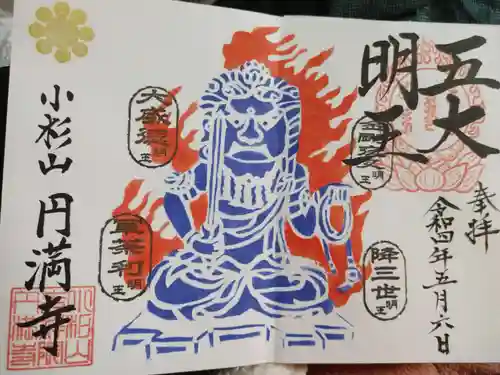 五大
明王
奉拝
令和四年五月六日
金剛夜叉明王
降三世明王
大威徳明王
軍荼利明王
小杉山 円満寺
小杉山
円満寺